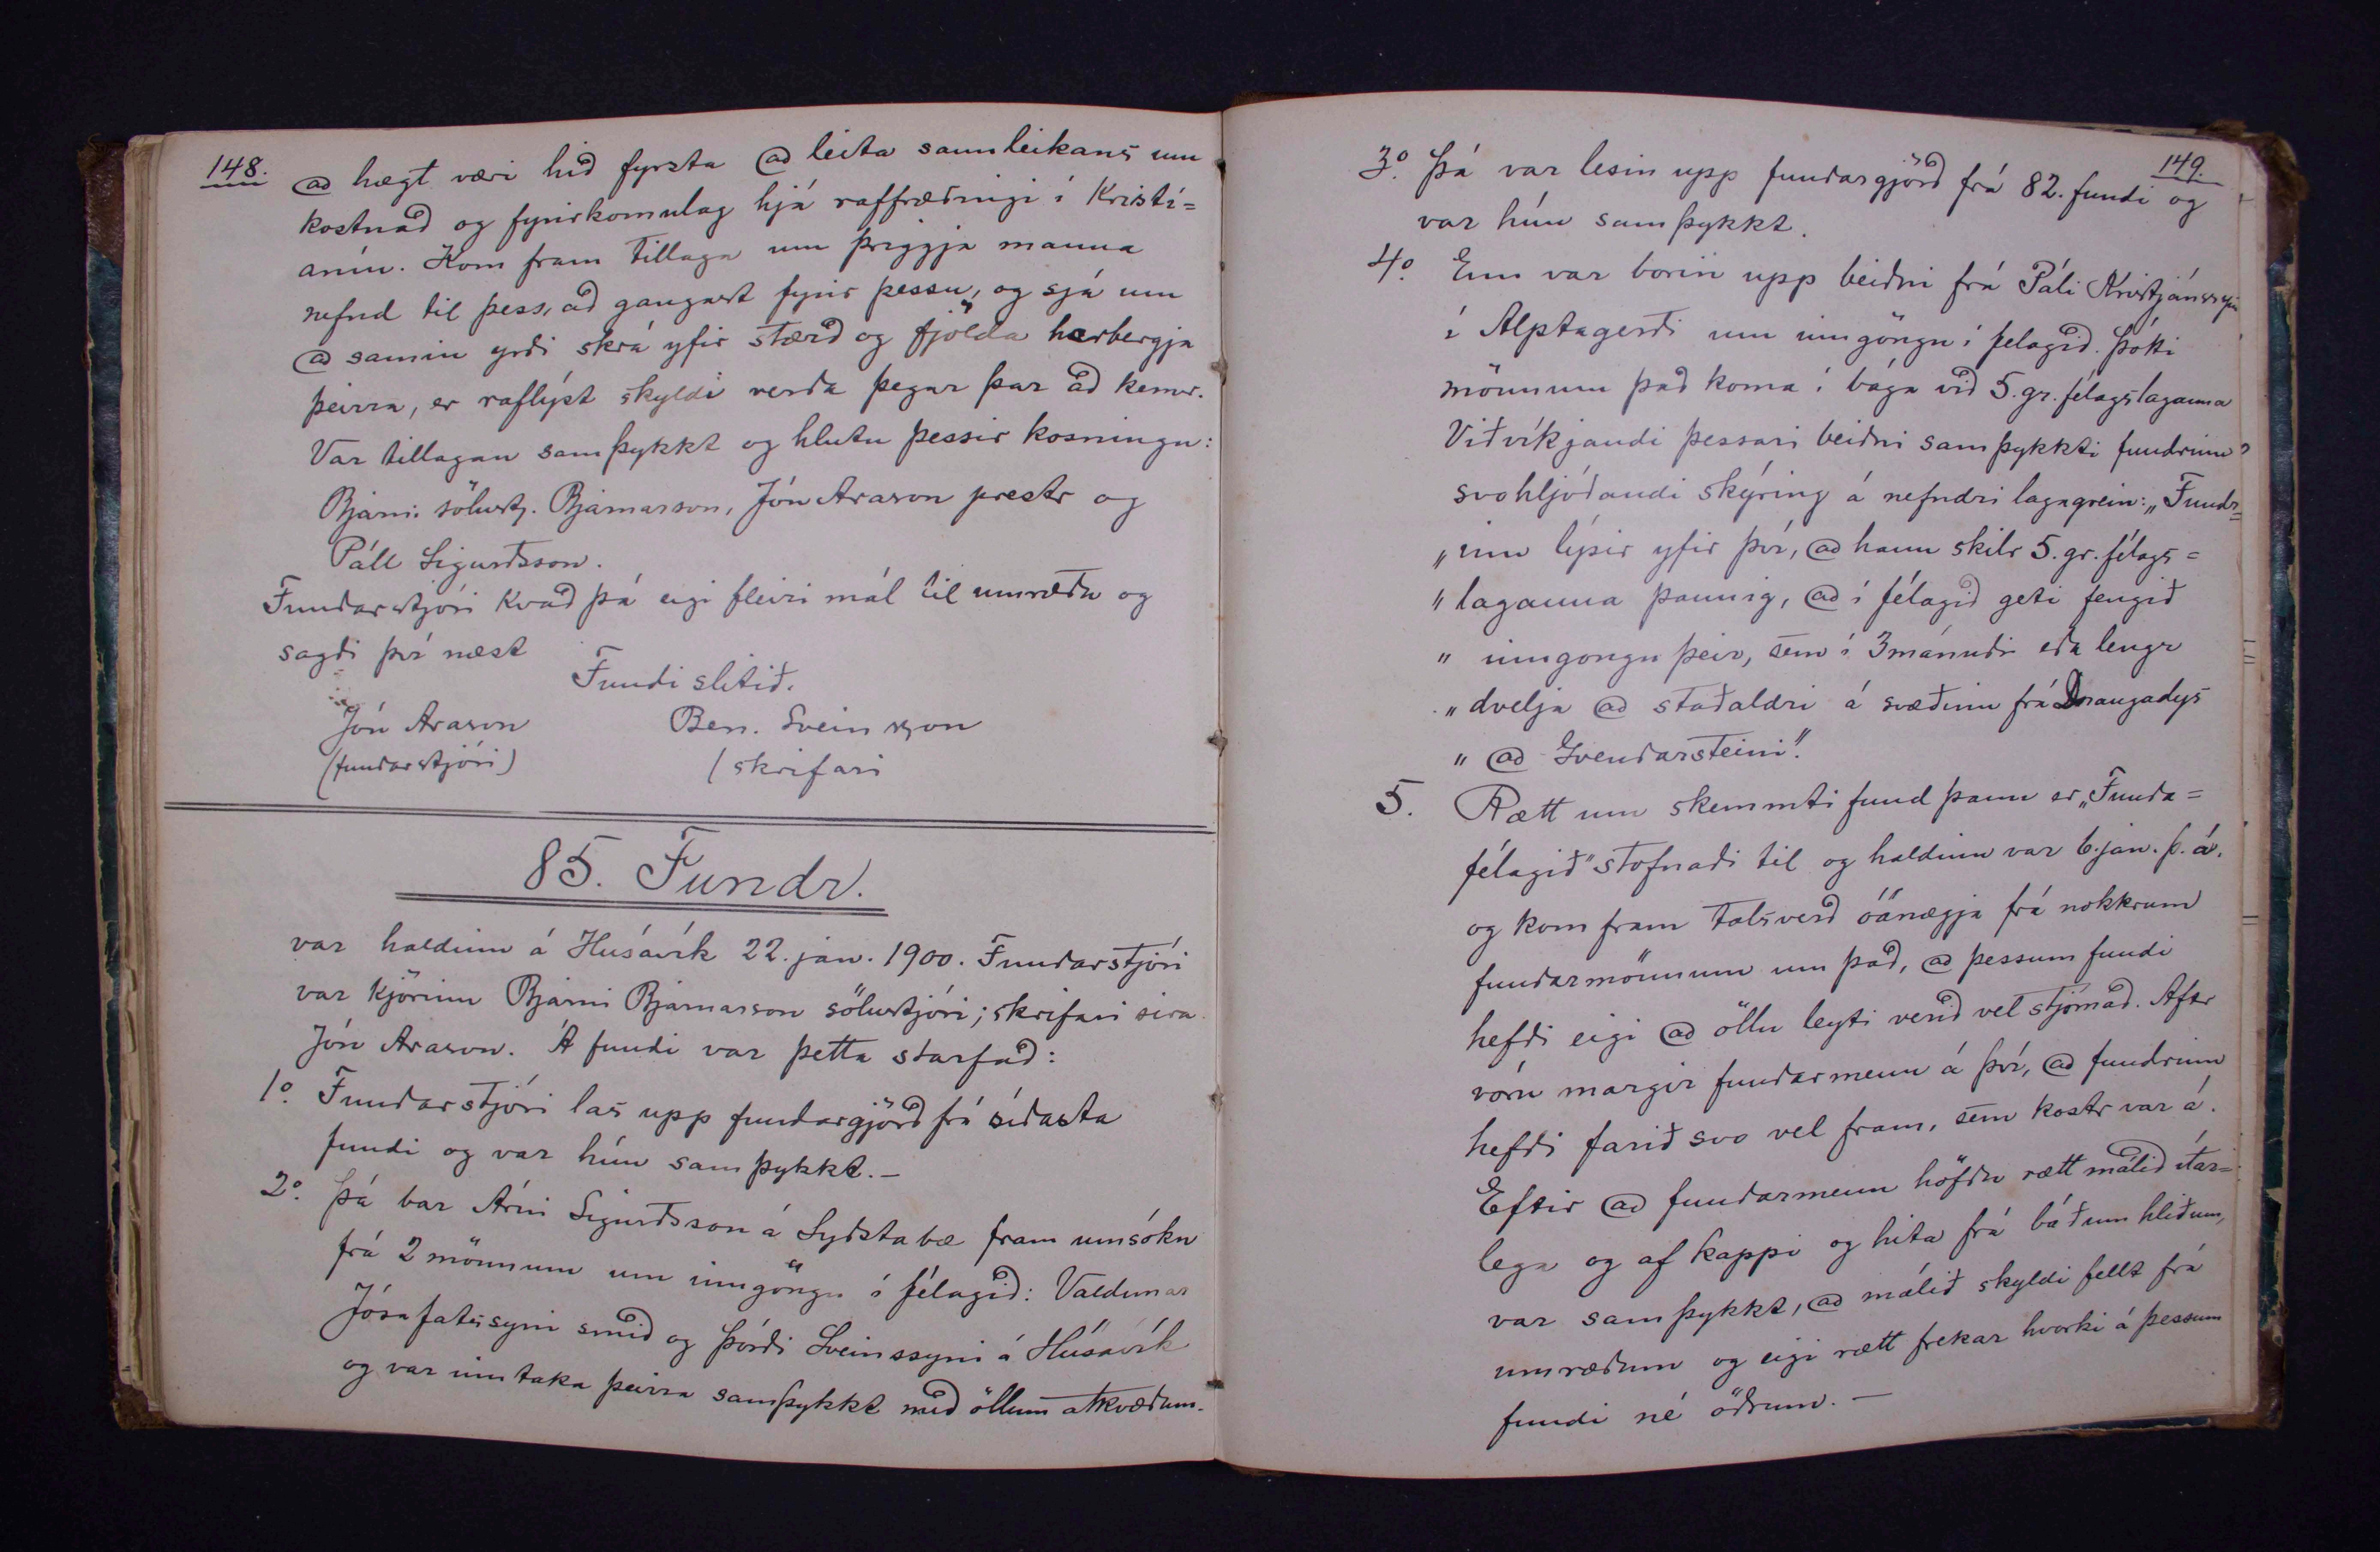 148.
að hægt væri hið fyrsta að leita sannleikans um
kostnað og fyrirkomulag hjá raffræðingi í Kristi=
aníu. Kom fram tillaga um þriggja manna
nefnd til þess, að gangast fyrir þessu, og sjá um
að samin yrði skrá yfir stærð og fjölda herbergja
þeirra, er raflýst skyldi verða þegar þar að kemr.
Var tillagan samþykkt og hlutu þessir kosningu:
Bjarni sölustj. Bjarnarson, Jón Arason prestr og
Páll Sigurðsson.
Fundarstjóri kvað þá eigi fleiri mál til umræðu og
sagði því næst
Fundi slitið.
Jón Arason Ben. Sveinsson
(fundarstjóri) (skrifari
85. Fundr.
var haldinn á Húsavík 22. jan. 1900. Fundarstjóri
var kjörinn Bjarni Bjarnarson sölustjóri; skrifari sira
Jón Arason. Á fundi var þetta starfað:
1º. Fundarstjóri las upp fundargjörð frá síðasta
fundi og var hún samþykkt.—
2º. Þá bar Árni Sigurðsson á Syðstabæ fram umsókn
frá 2 mönnum um inngöngu í félagið: Valdimar
Jósafatssyni smið og Þórði Sveinssyni á Húsavík
og var inntaka þeirra samþykkt með öllum atkvæðum.
149.
3º. Þá var lesin upp fundargjörð frá 82. fundi og
var hún samþykkt.
4º. Enn var borin upp beiðni frá Páli Kristjánssyni
í Alptagerði um inngöngu í felagið. Þótti
mönnum það koma í bága við 5. gr. félagslaganna
Viðvíkjandi þessari beiðni samþykkti fundrinn
svohljóðandi skýring á nefndri lagagrein: „Fundr=
„inn lýsir yfir því, að hann skilr 5. gr. félags=
„laganna þannig, að í félagið geti fengið
„inngongu þeir, sem í 3 mánuði eða lengr
„dvelja að staðaldri á svæðinu frá Draugadys
„að Gvendarsteini".
5. Rætt um skemmtifund þann er „Funda=
félagið" stofnaði til og haldinn var 6. jan. þ. á.
og kom fram talsverð óánægja frá nokkrum
fundarmönnum um það, að þessum fundi
hefði eigi að öllu leyti verið vel stjórnað. Aftr
vóru margir fundarmenn á því, að fundrinn
hefði farið svo vel fram, sem kostr var á.
Eftir að fundarmenn höfðu rætt málið ítar=
lega og af kappi og hita frá báðum hliðum,
var samþykkt, að málið skyldi fellt frá
umræðum og eigi rætt frekar hvorki á þessum
fundi né öðrum.—